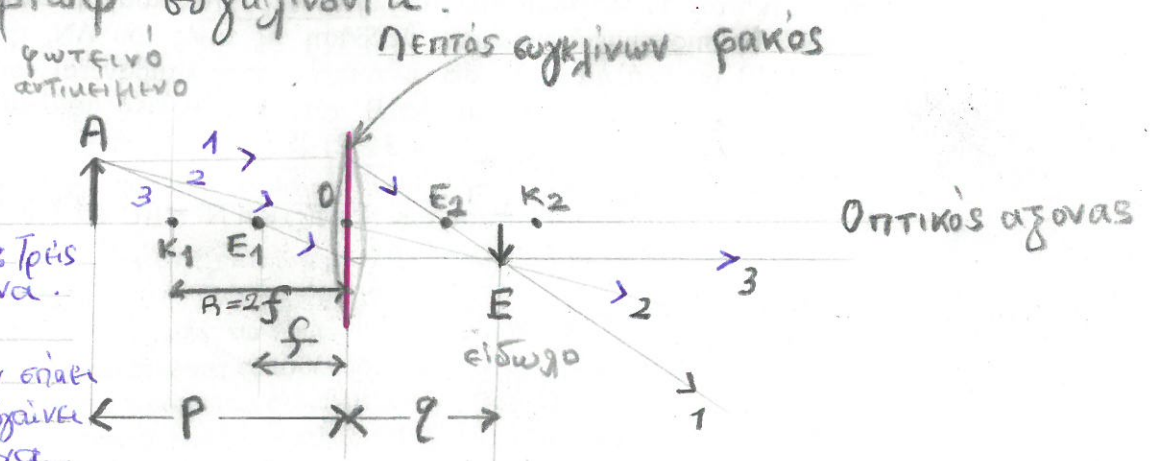 συγκλίνοντα.
φωτεινό
αντικείμενο
Λεπτός συγκλίνων φακός
A
1
2
3
O
E2
K2
Οπτικός αξονας
K1
E1
Τρεις
R=2f
3
2
E
f
είδωλο
1
P
q